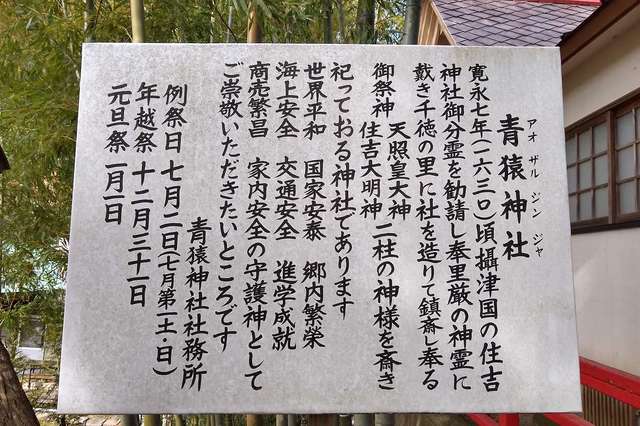 青猿神社
アオザルジンジャ
寛永七年(一六三〇)頃攝津国の住吉
神社御分霊を勧請し奉里厳の神霊に
戴き千徳の里に社を造りて鎮斎し奉る
御祭神 天照皇大神 住吉大明神 二柱の神様を斎き
祀っておる神社であります
世界平和 国家安泰 郷内繁栄
海上安全 交通安全 進学成就
商売繁昌 家内安全の守護神として
ご崇敬いただきたいところです
青猿神社社務所
例祭日 七月二日(七月第一土・日)
年越祭 十二月三十一日
元旦祭 一月一日